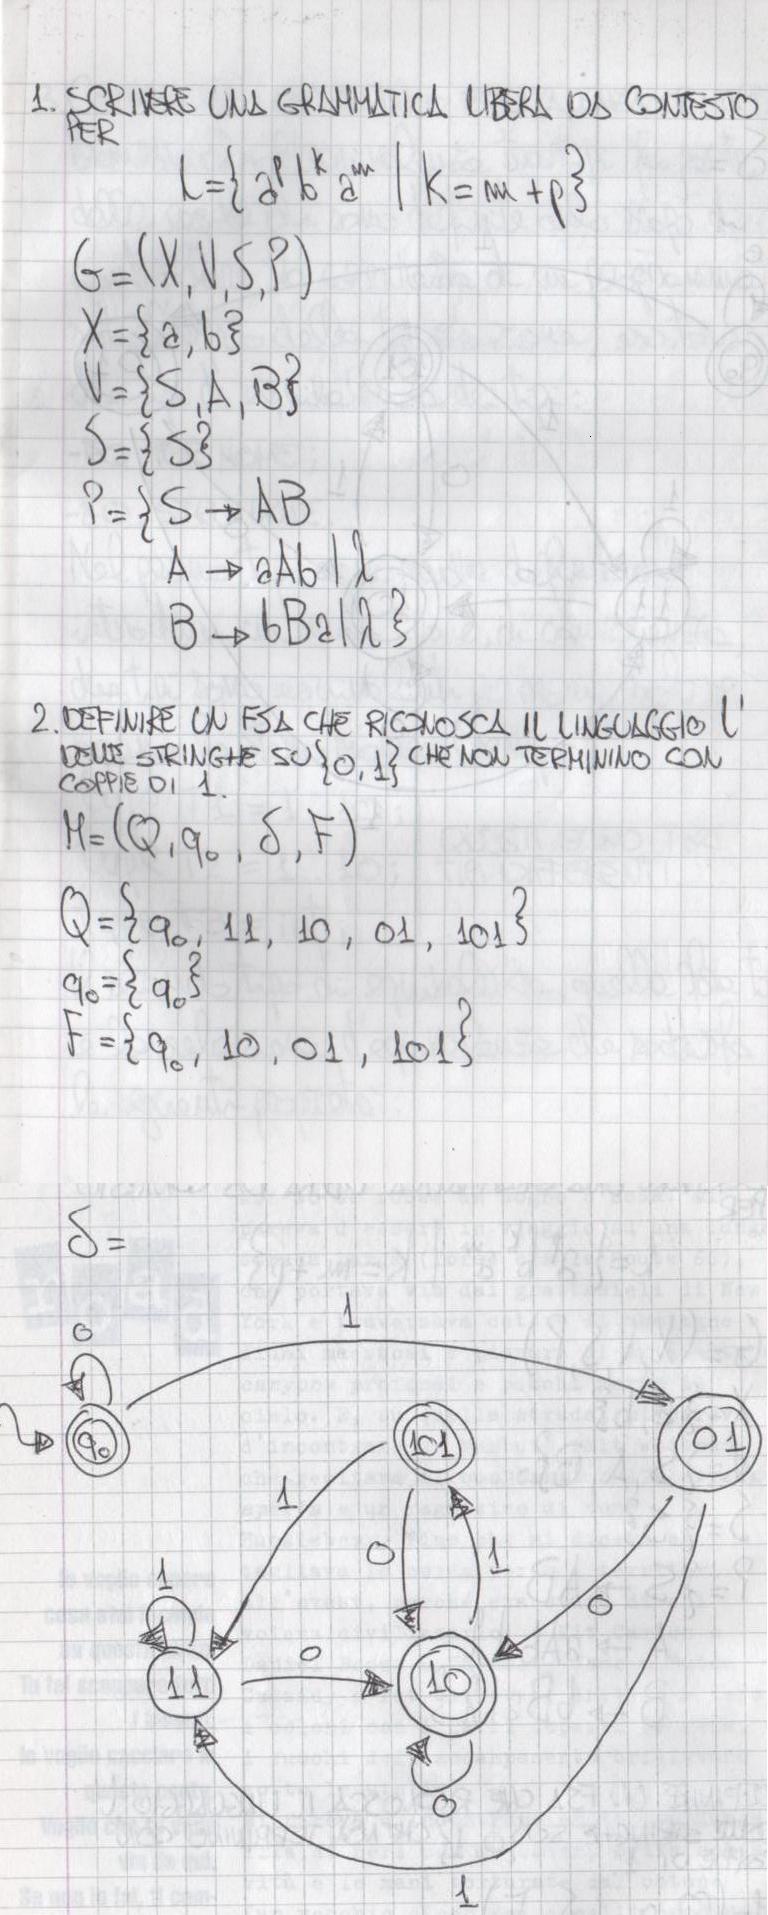 1. SCRIVERE UNA GRAMMATICA LIBERA DA CONTESTO
PER
L={a^p b^k a^m | K=m+p}
G=(X,V,S,P)
X={a,b}
V={S,A,B}
S={S}
P={S→AB
A→aAb|λ
B→bBa|λ}
2. DEFINIRE UN FSA CHE RICONOSCA IL LINGUAGGIO L'
DELLE STRINGHE SU {0,1} CHE NON TERMININO CON
COPPIE DI 1.
M=(Q,q₀,δ,F)
Q={q₀, 11, 10, 01, 101}
q₀={q₀}
F={q₀, 10, 01, 101}
δ=
1
0
q₀
101
01
1
0
1
0
1
0
11
10
0
1